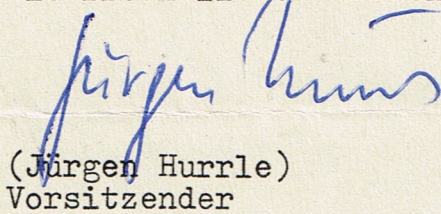 Jürgen Hurrle
(Jürgen Hurrle)
Vorsitzender